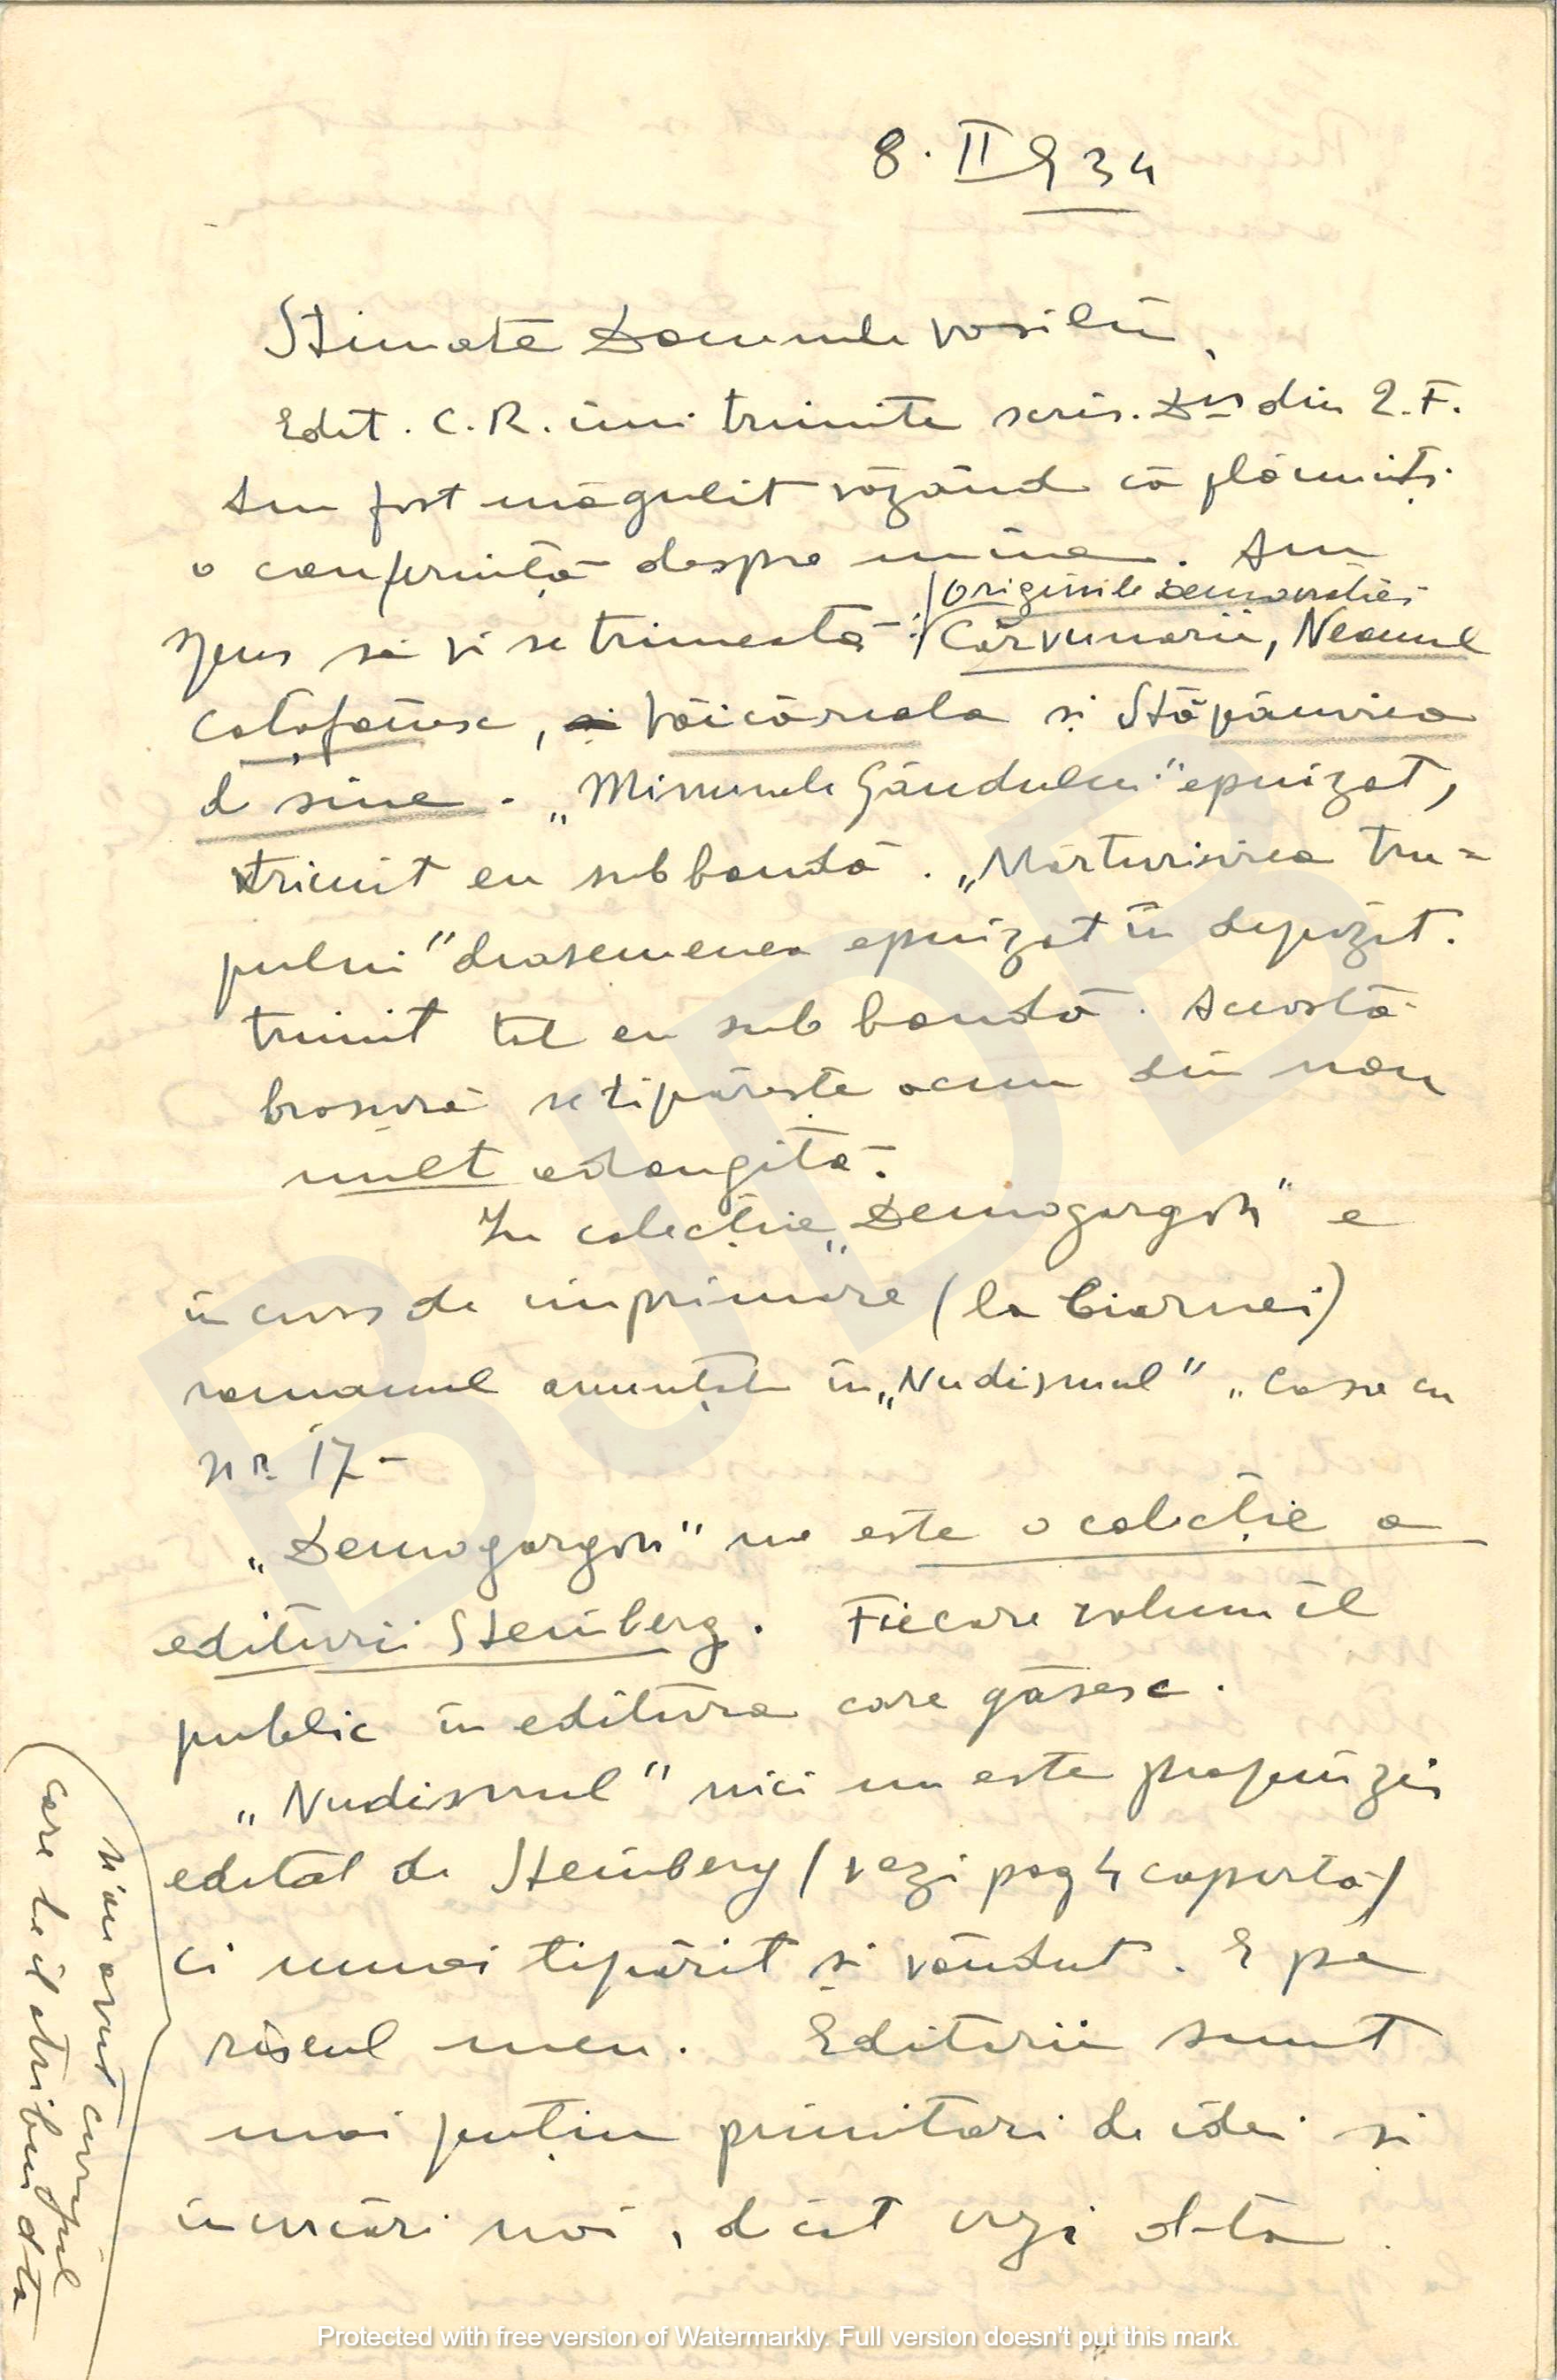 8. II 934
Stimate Domnule Vasiliu,
Edit. C.R. îmi trimite scris. Dvs din 2. F.
Am fost măgulit văzând că plănuiți
o conferință despre mine. Am
spus să vi se trimeată: / Originile Democrației
Cărvunarii, Neamul
Coțofănesc, și Văicăreala și Stăpânirea
d sine. „Minunile Gândului" epuizat,
trimit eu sub bandă. „Mărturisirea tru=
pului" deasemenea epuizat în depozit.
trimit tot eu sub bandă. Această
broșură se tipărește acum din nou
mult adaugită.
In colecție „Demogorgon" e
în curs de imprimare (la Ciornei)
romanul anunțat în „Nudismul" „Casa cu
nr. 17 -
„Demogorgon" nu este o colecție a
editurii Steinberg. Fiecare volum îl
public în editura care găsesc.
„Nudismul" nici nu este propriu zis
editat de Steinberg (vezi pag 4 coperta)
ci numai tipărit și vândut. E pe
riscul meu. Editurii sunt
mai puțin primitori de idei și
încercări noi, d cât crezi d-ta
(n'au avut curajul
care le îl atribui dta
Protected with free version of Watermarkly. Full version doesn't put this mark.
BJDB